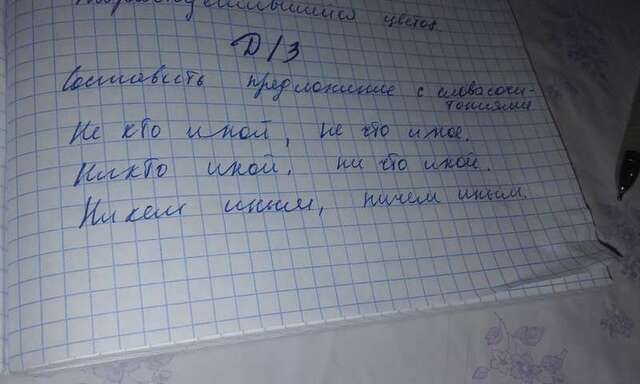 цветов.
Д/З
Составить предложение с словосочи-
таниями
Не кто иной, не что иное.
Никто иной, ни что иной.
Ни кем иным, ничем иным.